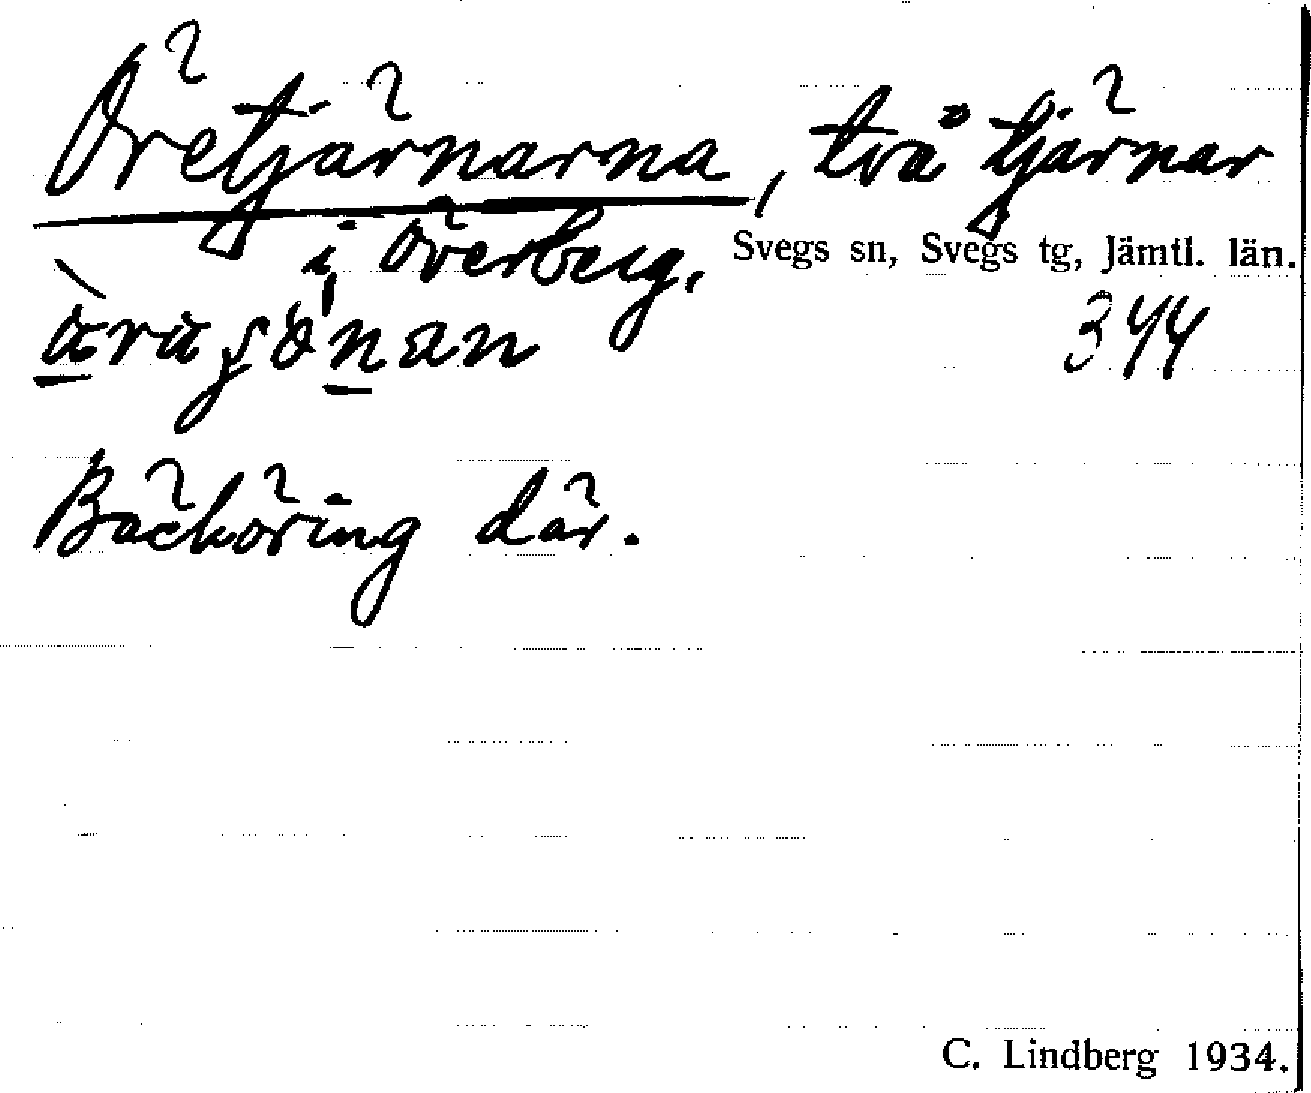 Öretjärnarna, två tjärnar
i Överberg. Svegs sn, Svegs tg, Jämtl. län.
344
Bäcköring där.
C. Lindberg 1934.